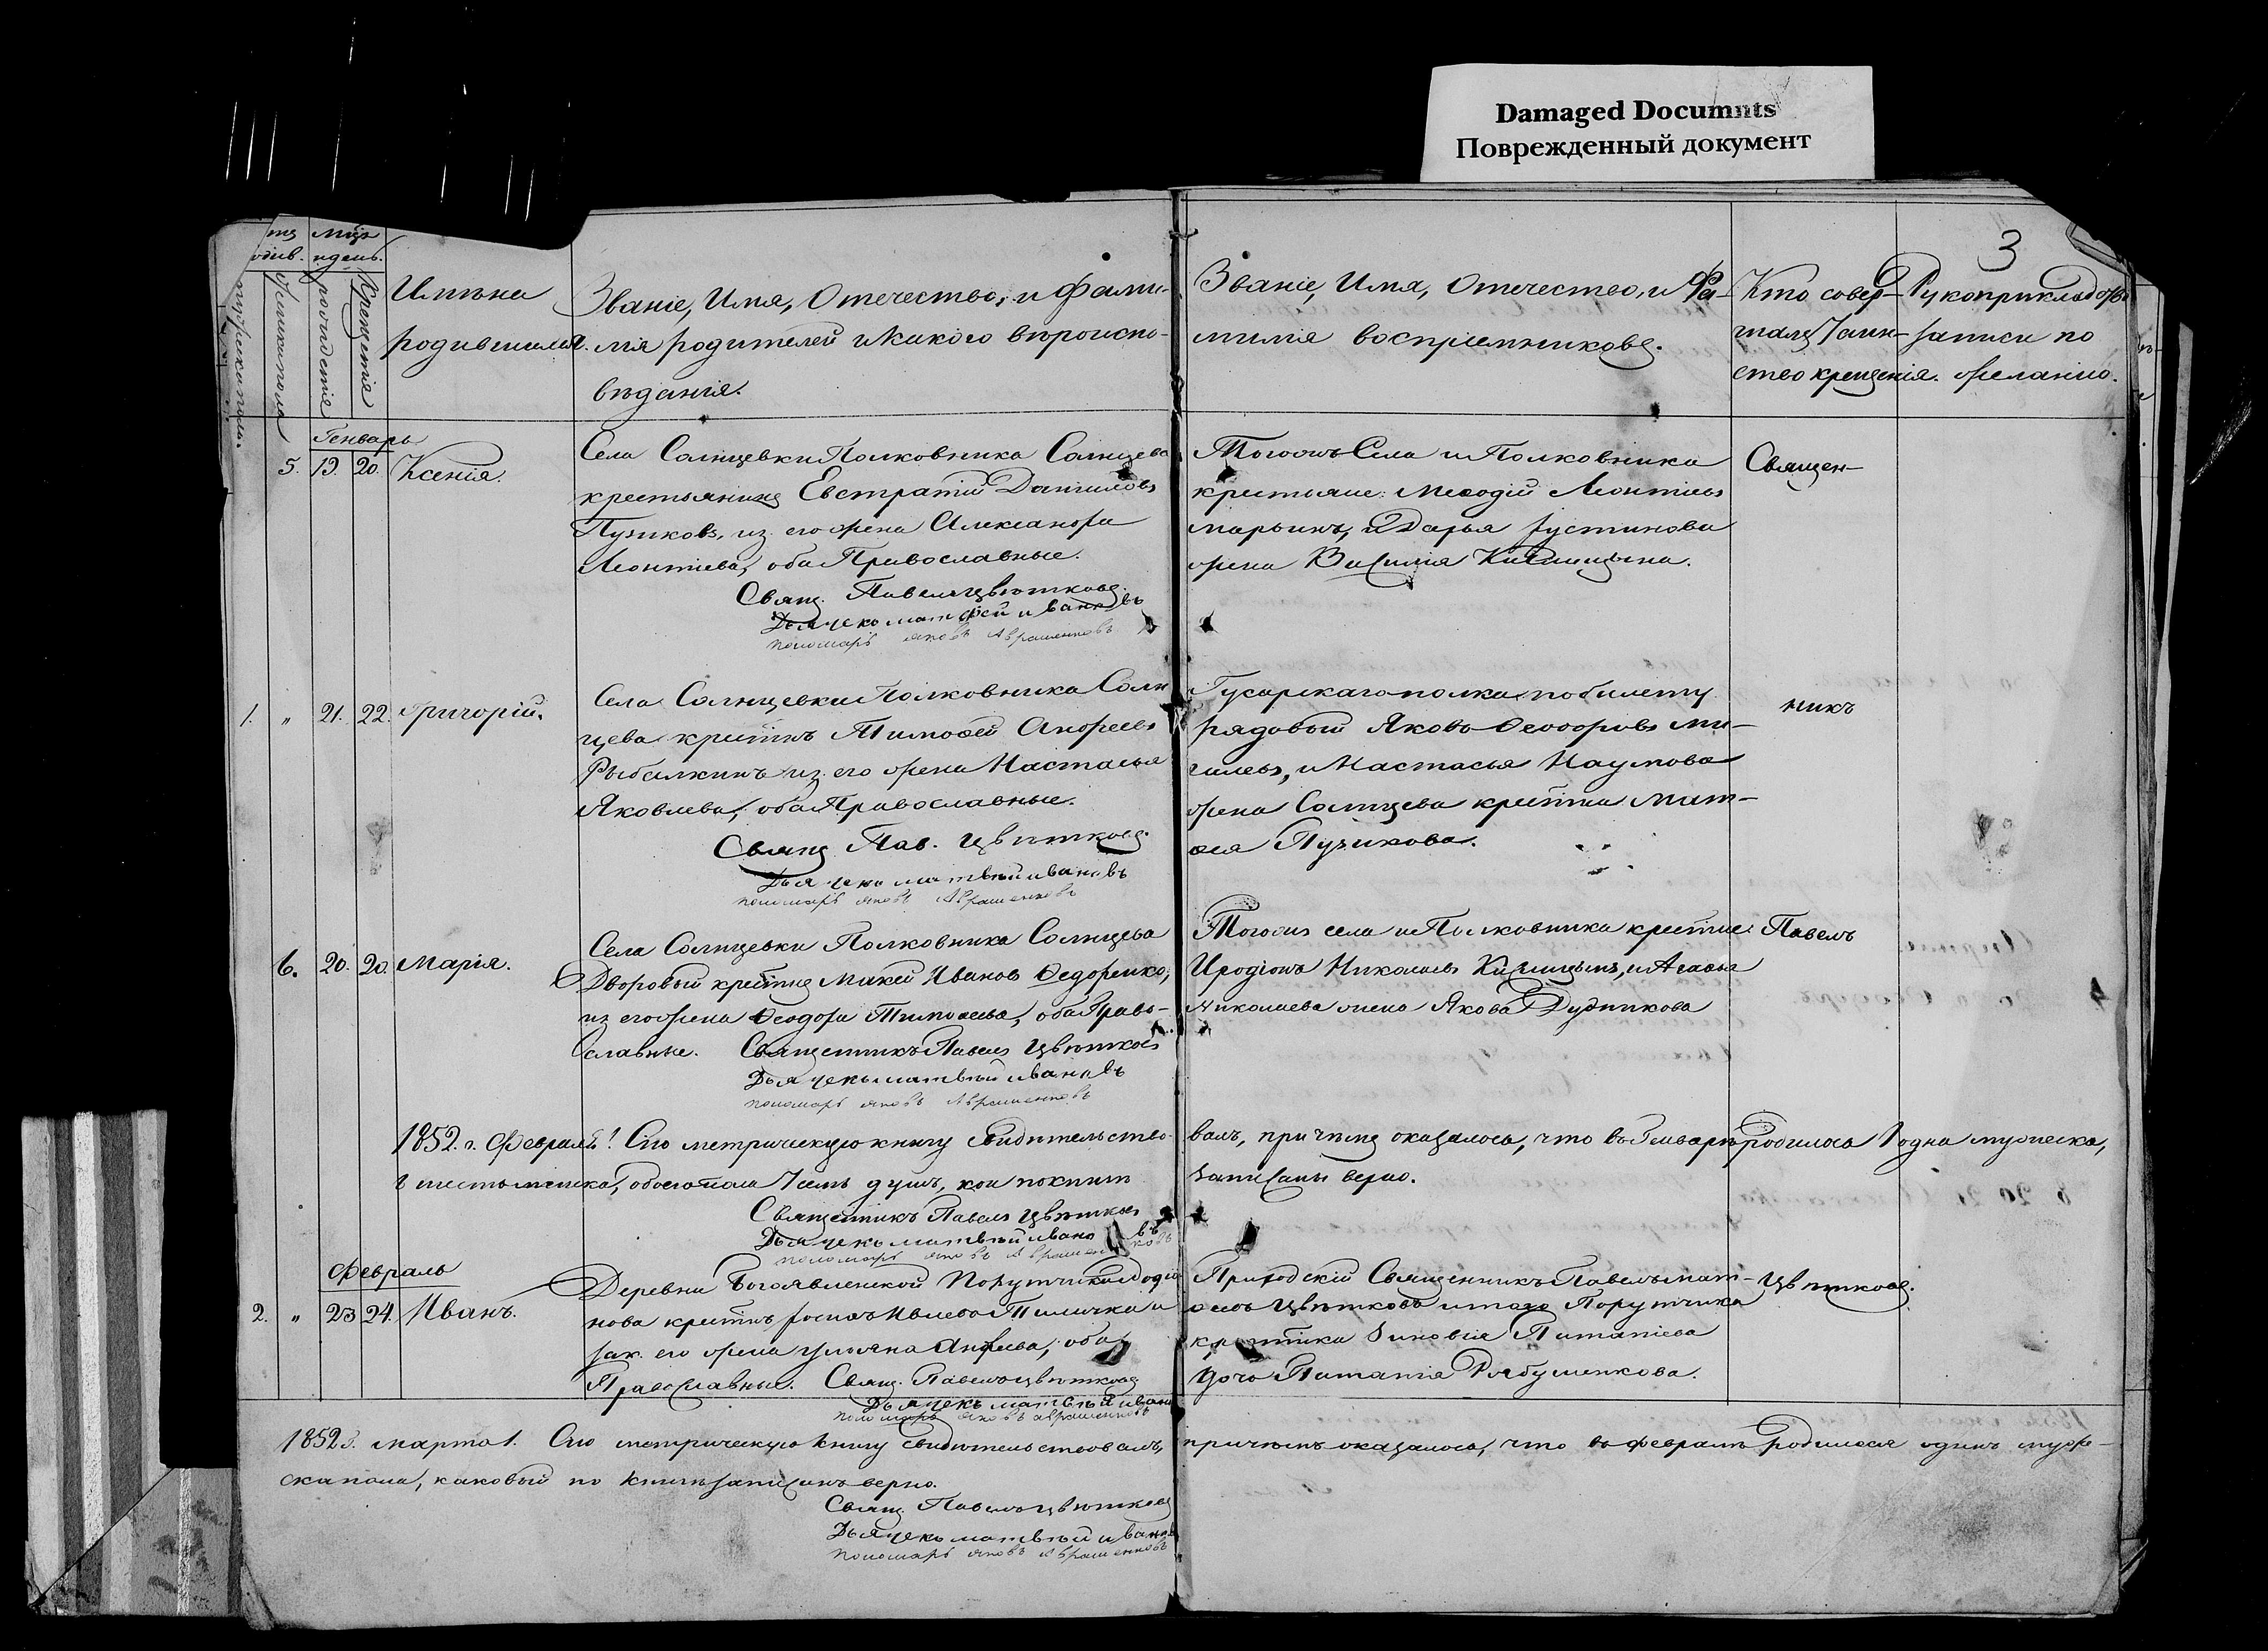 Damaged Documnts
Поврежденный документ
3
мѣц.
и день.
мужска пола.
женска пола
рожденiе
Крещенiе
Имѣна
родившихся.
Званiе, Имя, Отечество, и Фами-
лiя родителей и какого вѣроиспо-
вѣданiя.
Званiе, Имя, Отечество, и Фа-
милiя воспрiемниковъ.
Кто совер-
шалъ Таин-
ство крещенiя.
Рукоприкладство
записи по
желанiю.
Генварь
5. 19. 20. Ксенiя.
Села Солнцевки Полковника Солнцева
крестьянинъ Евстратiй Даниловъ
Пузиковъ, и з. его жена Александра
Леонтiева, оба Православные.
Свящ. Павелъ Цвѣтковъ.
Дьячекъ Матвѣй Ивановъ
пономарь Яковъ Авраменковъ
Тогожъ Села и Полковника
крестьяне: Меѳодiй Леонтiевъ
Марьинъ, и Дарья Іустинова
жена Василiя
Священ-
1. " 21. 22. Григорiй.
Села Солнцевки Полковника Солн
цева крестнъ Тимоѳей Андреевъ
Рыбалкинъ и з. его жена Настасья
Яковлева, оба Православные.
Свящ. Пав. Цвѣтковъ.
Дьячекъ Матвѣй Ивановъ
пономарь Яковъ Авраменковъ
Гусарскаго полка по билету
рядовый Яковъ Ѳеодоровъ Ми-
и Настасья Наумова
жена Солнцева крестнна Мат-
ѳея Пузикова.
никъ
6. 20. 20. Марiя.
Села Солнцевки Полковника Солнцева
Дворовый крестнъ Мakeй Ивановъ Ѳедоренко,
и з его жена Ѳеодора Тимоѳеева, оба Право-
славные. Священникъ Павелъ Цвѣтковъ
Дьячекъ Матвѣй Ивановъ
пономарь Яковъ Авраменковъ
Тогожъ села и Полковника крестне:
Иродiонъ Николаевъ и Агафья
Николаева жена Якова Дудникова
Павелъ
1852. г. Февраля 1. Сiю метрическую книгу свидѣтельство-
валъ, при чемъ оказалось, что въ Генварѣ родилось 1 одна мужеска,
6 шесть женска, обоего пола 7 семь душъ, кои по книгѣ
записаны верно.
Священникъ Павелъ Цвѣтковъ
Дьячекъ Матвѣй Ивановъ
пономарь Яковъ Авраменковъ
Февраль
2. " 23 24. Иванъ.
Деревни Богоявленской Порутчика
нова крестнъ и
зак. его жена Ульяна оба
Православные. Свящ. Павелъ Цвѣтковъ
Дьячекъ Матвѣй Иванов
пономарь Яковъ Авраменковъ
Приходскiй Священникъ Павелъ Мат-
ѳеевъ Цвѣтковъ и того Порутчика
крестнка Зиновiя
дочь Рябушенкова.
Цвѣтковъ.
1852 г. Марта 1. Сiю метрическую книгу свидѣтельствовалъ,
причемъ оказалось, что въ Февралѣ родился одинъ муже-
ска пола, каковый по книгѣ записанъ верно.
Свящ. Павелъ Цвѣтковъ
Дьячекъ Матвѣй Иванов
пономарь Яковъ Авраменковъ